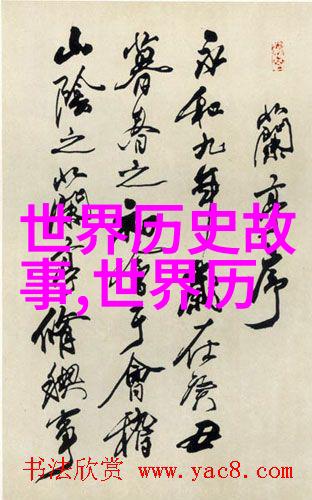 蘭亭序
永和九年歲在癸丑
暮春之初會于會稽
山陰之蘭亭脩禊事
世界历史故
事,世界历
书法欣赏 www.yac8.com